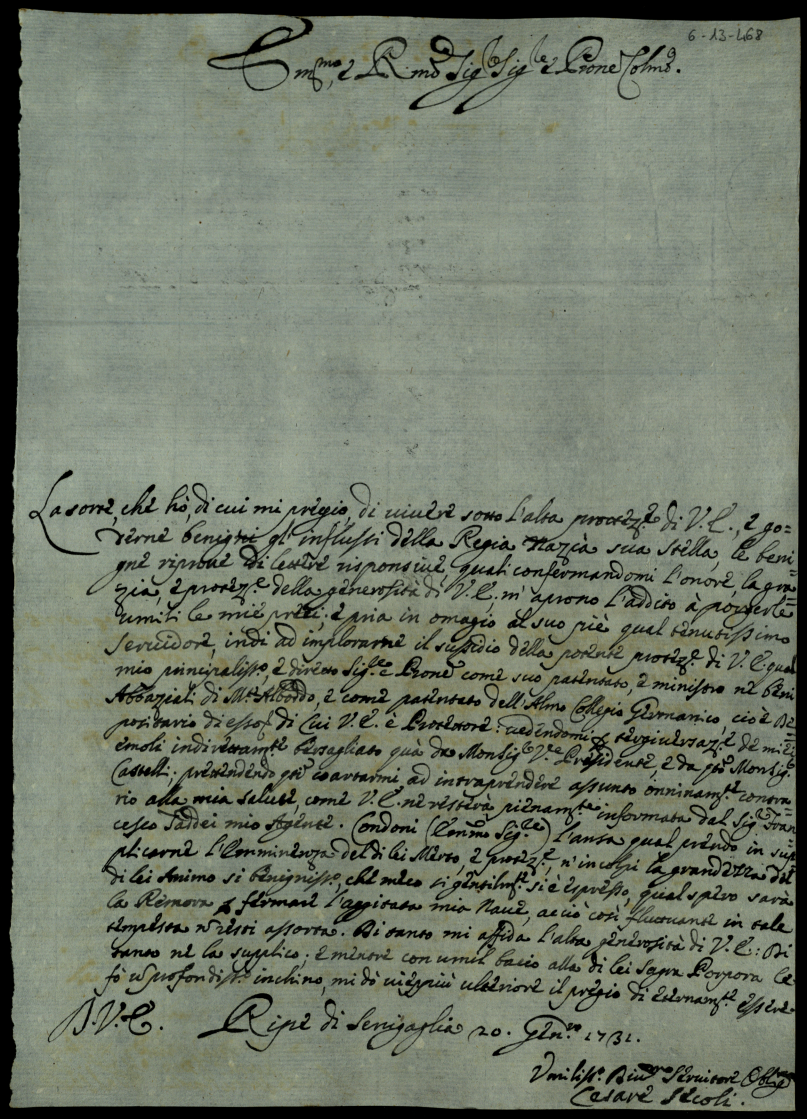 6-13-468
Em.mo, e R.mo Sig.r Sig.re e P.rone Col.mo
La sorte, che hò, di cui mi pregio, di vivere sotto l'alta protez.e di V. E., e go-
derne benigni gl'influssi della Regia sua Stella, le beni-
gne riprove di lettere risponsive quali confermandomi l'onore, la gra-
zia, e protez.e della generosità di V. E. m'aprono l'addito à porgerle
umili le mie preci; e pria in omagio al suo piè qual tenutissimo
Servidore, indi ad implorarne il sussidio della potente protez.e di V. E. qual
mio principaliss.o, e diretto Sig.re e P.rone come suo patentato, e ministro ne beni
Abbaziali di M.te Abodo, e come patentato dell'Almo Collegio Germanico, cioè De-
positario di esso di cui V. E. è Protettore: vedendomi p tergiversaz.e de miei
emoli indirettam.te bersagliato quà da Monsig.r V.e Presidente, e da Monsig.r
Castelli; pretendendo coartarmi ad intraprendere assunto onninam.te contra-
rio alla mia salute, come V. E. ne resterà pienam.te informata dal Sig.r Fran-
cesco Taddei mio Agente. Condoni (Em.mo Sig.re) l'ansa qual prendo in sup-
plicarne l'Emminenza del di lei Merto, e protez.e, n'incolpi la grandezza del
di lei Animo si benigniss.o, che meco si gentilm.te si è espresso, qual spero sarà
la Remora p fermare l'aggitata mia Nave, acciò così fluttuante in tale
tempesta n resti assorta. Di tanto mi affida l'alta generosità di V. E: Di
tanto ne la supplico; e mentre con umil bacio alla di lei Sagra Porpora le
fò profondiss.o inchino, mi dò vieppiù ulteriore il pregio di eternam.te essere
D. V. E. Ripe di Senigaglia 20. Gen.ro 1731.
Umiliss.o Div.mo Servitore Oblig.mo
Cesare Secoli.